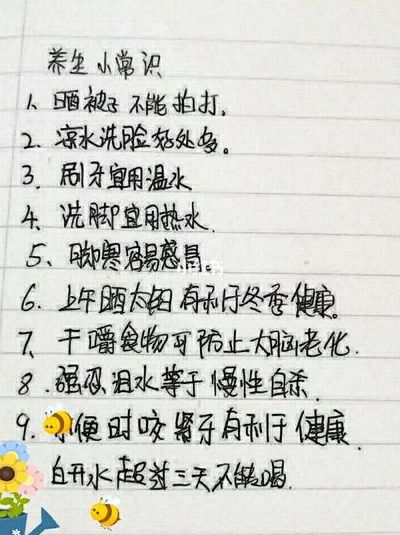 养生小常识
1、晒被子不能拍打.
2、凉水洗脸好处多。
3、刷牙宜用温水
4、洗脚宜用热水.
5、脚寒容易感冒.
6、上午晒太阳有利于冬季健康。
7、干嚼食物可防止大脑老化.
8.强忍泪水等于慢性自杀.
9.便时咬紧牙有利于健康.
白开水超过三天不能喝.